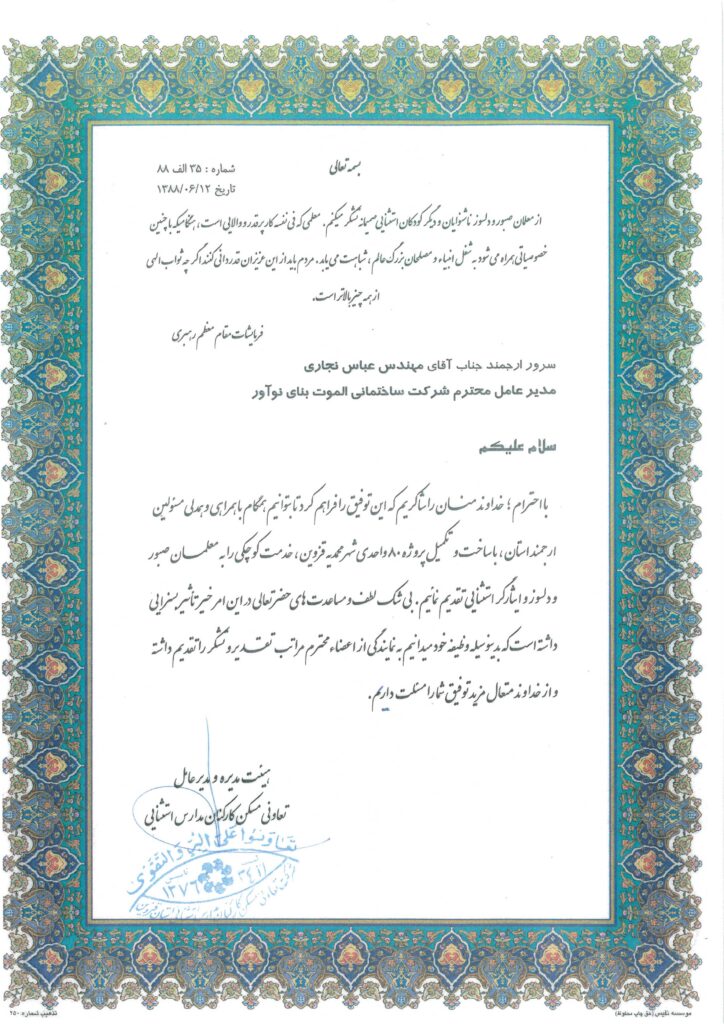 بسمه تعالی
شماره : ۳۵ الف ۸۸
تاریخ ۱۳۸۸/۰۶/۱۲
از معلمان صبور و دلسوز ناشنوایان و دیگر کودکان استثنایی صمیمانه تشکر میکنم. معلمی که فی نفسه کار پرقدر و والایی است، هنگامیکه با چنین
خصوصیاتی همراه می شود به شغل انبیاء و مصلحان بزرگ عالم، شباهت می یابد. مردم باید از این عزیزان قدردانی کنند اگر چه ثواب الهی
از همه چیز بالاتر است.
فرمایشات مقام معظم رهبری
سرور ارجمند جناب آقای مهندس عباس نجاری
مدیر عامل محترم شرکت ساختمانی الموت بنای نوآور
سلام علیکم
با احترام ؛ خداوند منان را شاکریم که این توفیق را فراهم کرد تا بتوانیم همگام با همراهی و همدلی مسئولین
ارجمند استان ، با ساخت و تکمیل پروژه ۸۰ واحدی شهر محمدیه قزوین ، خدمت کوچکی را به معلمان صبور
و دلسوز و ایثارگر استثنایی تقدیم نمائیم. بی شک لطف و مساعدت های حضرتعالی در این امر خیر تأثیر بسزایی
داشته است که بدینوسیله وظیفه خود میدانیم به نمایندگی از اعضاء محترم مراتب تقدیر و تشکر را تقدیم داشته
و از خداوند متعال مزید توفیق شما را مسئلت داریم.
هیئت مدیره و مدیر عامل
تعاونی مسکن کارکنان مدارس استثنایی
تعاونوا علی البر والتقوی
۳۴۱۱
۱۳۷۶
موسسه نفیس (حق چاپ محفوظ)
تذهیب شماره: ۲۵۰